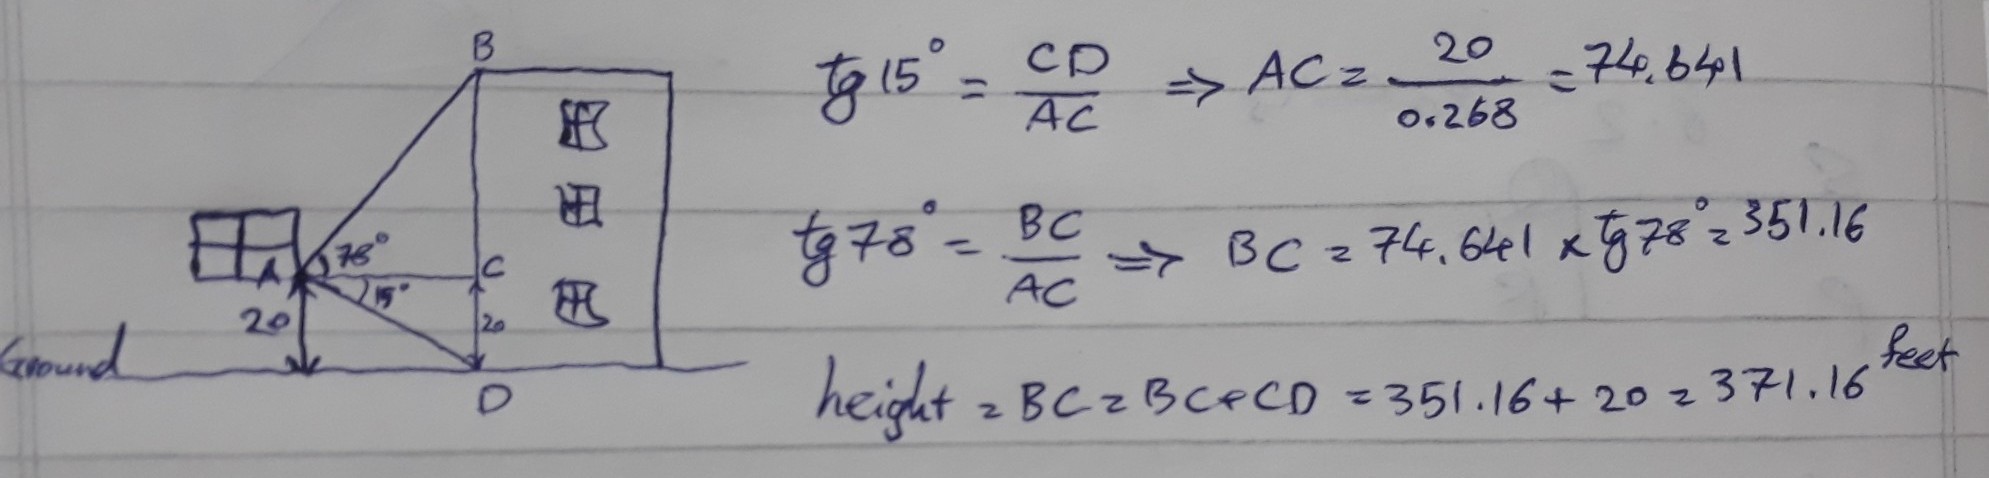 B
78°
A
C
15°
20
20
Ground
D
tg 15° = CD / AC ⇒ AC = 20 / 0.268 = 74.641
tg 78° = BC / AC ⇒ BC = 74.641 x tg 78° = 351.16
height = BC = BC + CD = 351.16 + 20 = 371.16 feet